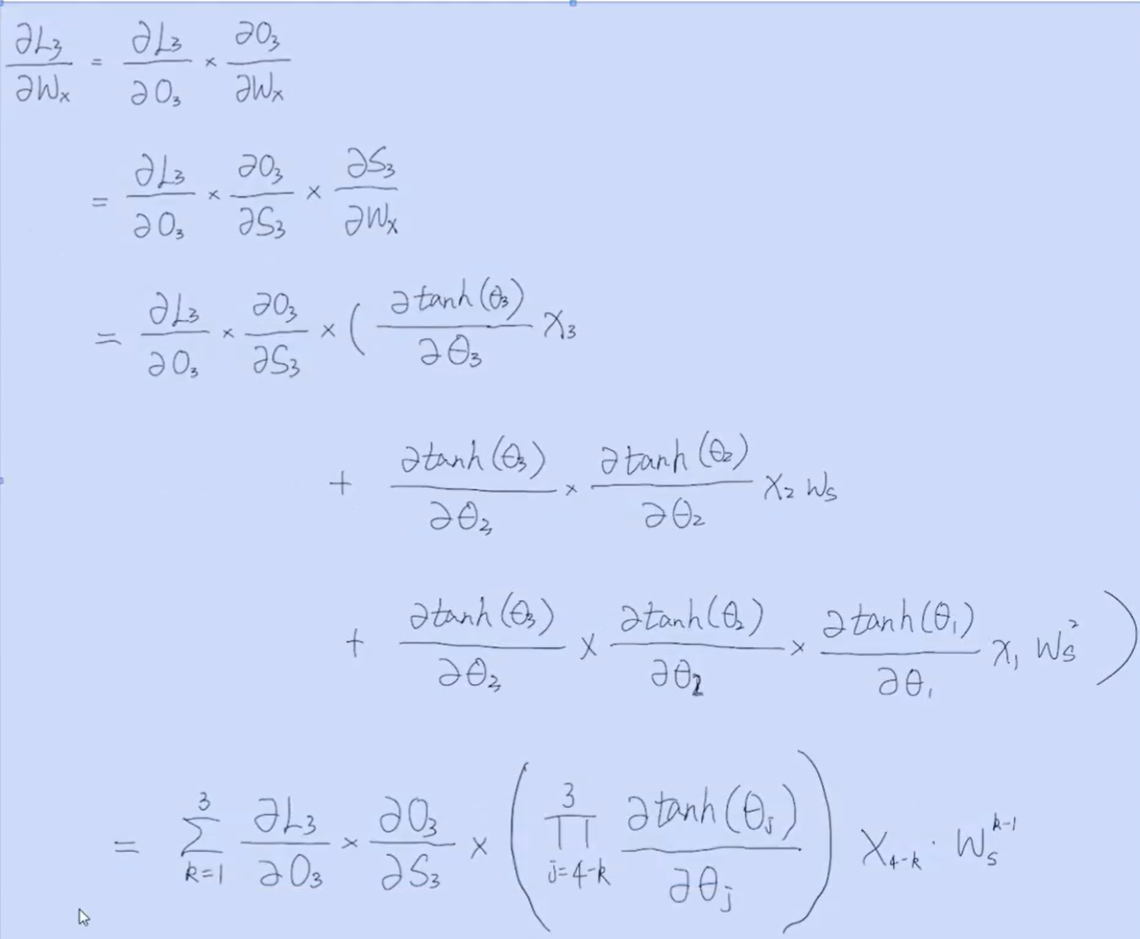 ∂L₃/∂Wₓ = ∂L₃/∂O₃ × ∂O₃/∂Wₓ
= ∂L₃/∂O₃ × ∂O₃/∂S₃ × ∂S₃/∂Wₓ
= ∂L₃/∂O₃ × ∂O₃/∂S₃ × ( ∂tanh(θ₃)/∂θ₃ X₃
+ ∂tanh(θ₃)/∂θ₃ × ∂tanh(θ₂)/∂θ₂ X₂ Wₛ
+ ∂tanh(θ₃)/∂θ₃ × ∂tanh(θ₂)/∂θ₂ × ∂tanh(θ₁)/∂θ₁ X₁ Wₛ² )
= ∑_{k=1}^{3} ∂L₃/∂O₃ × ∂O₃/∂S₃ × ( ∏_{j=4-k}^{3} ∂tanh(θⱼ)/∂θⱼ ) X_{4-k} · Wₛ^{k-1}